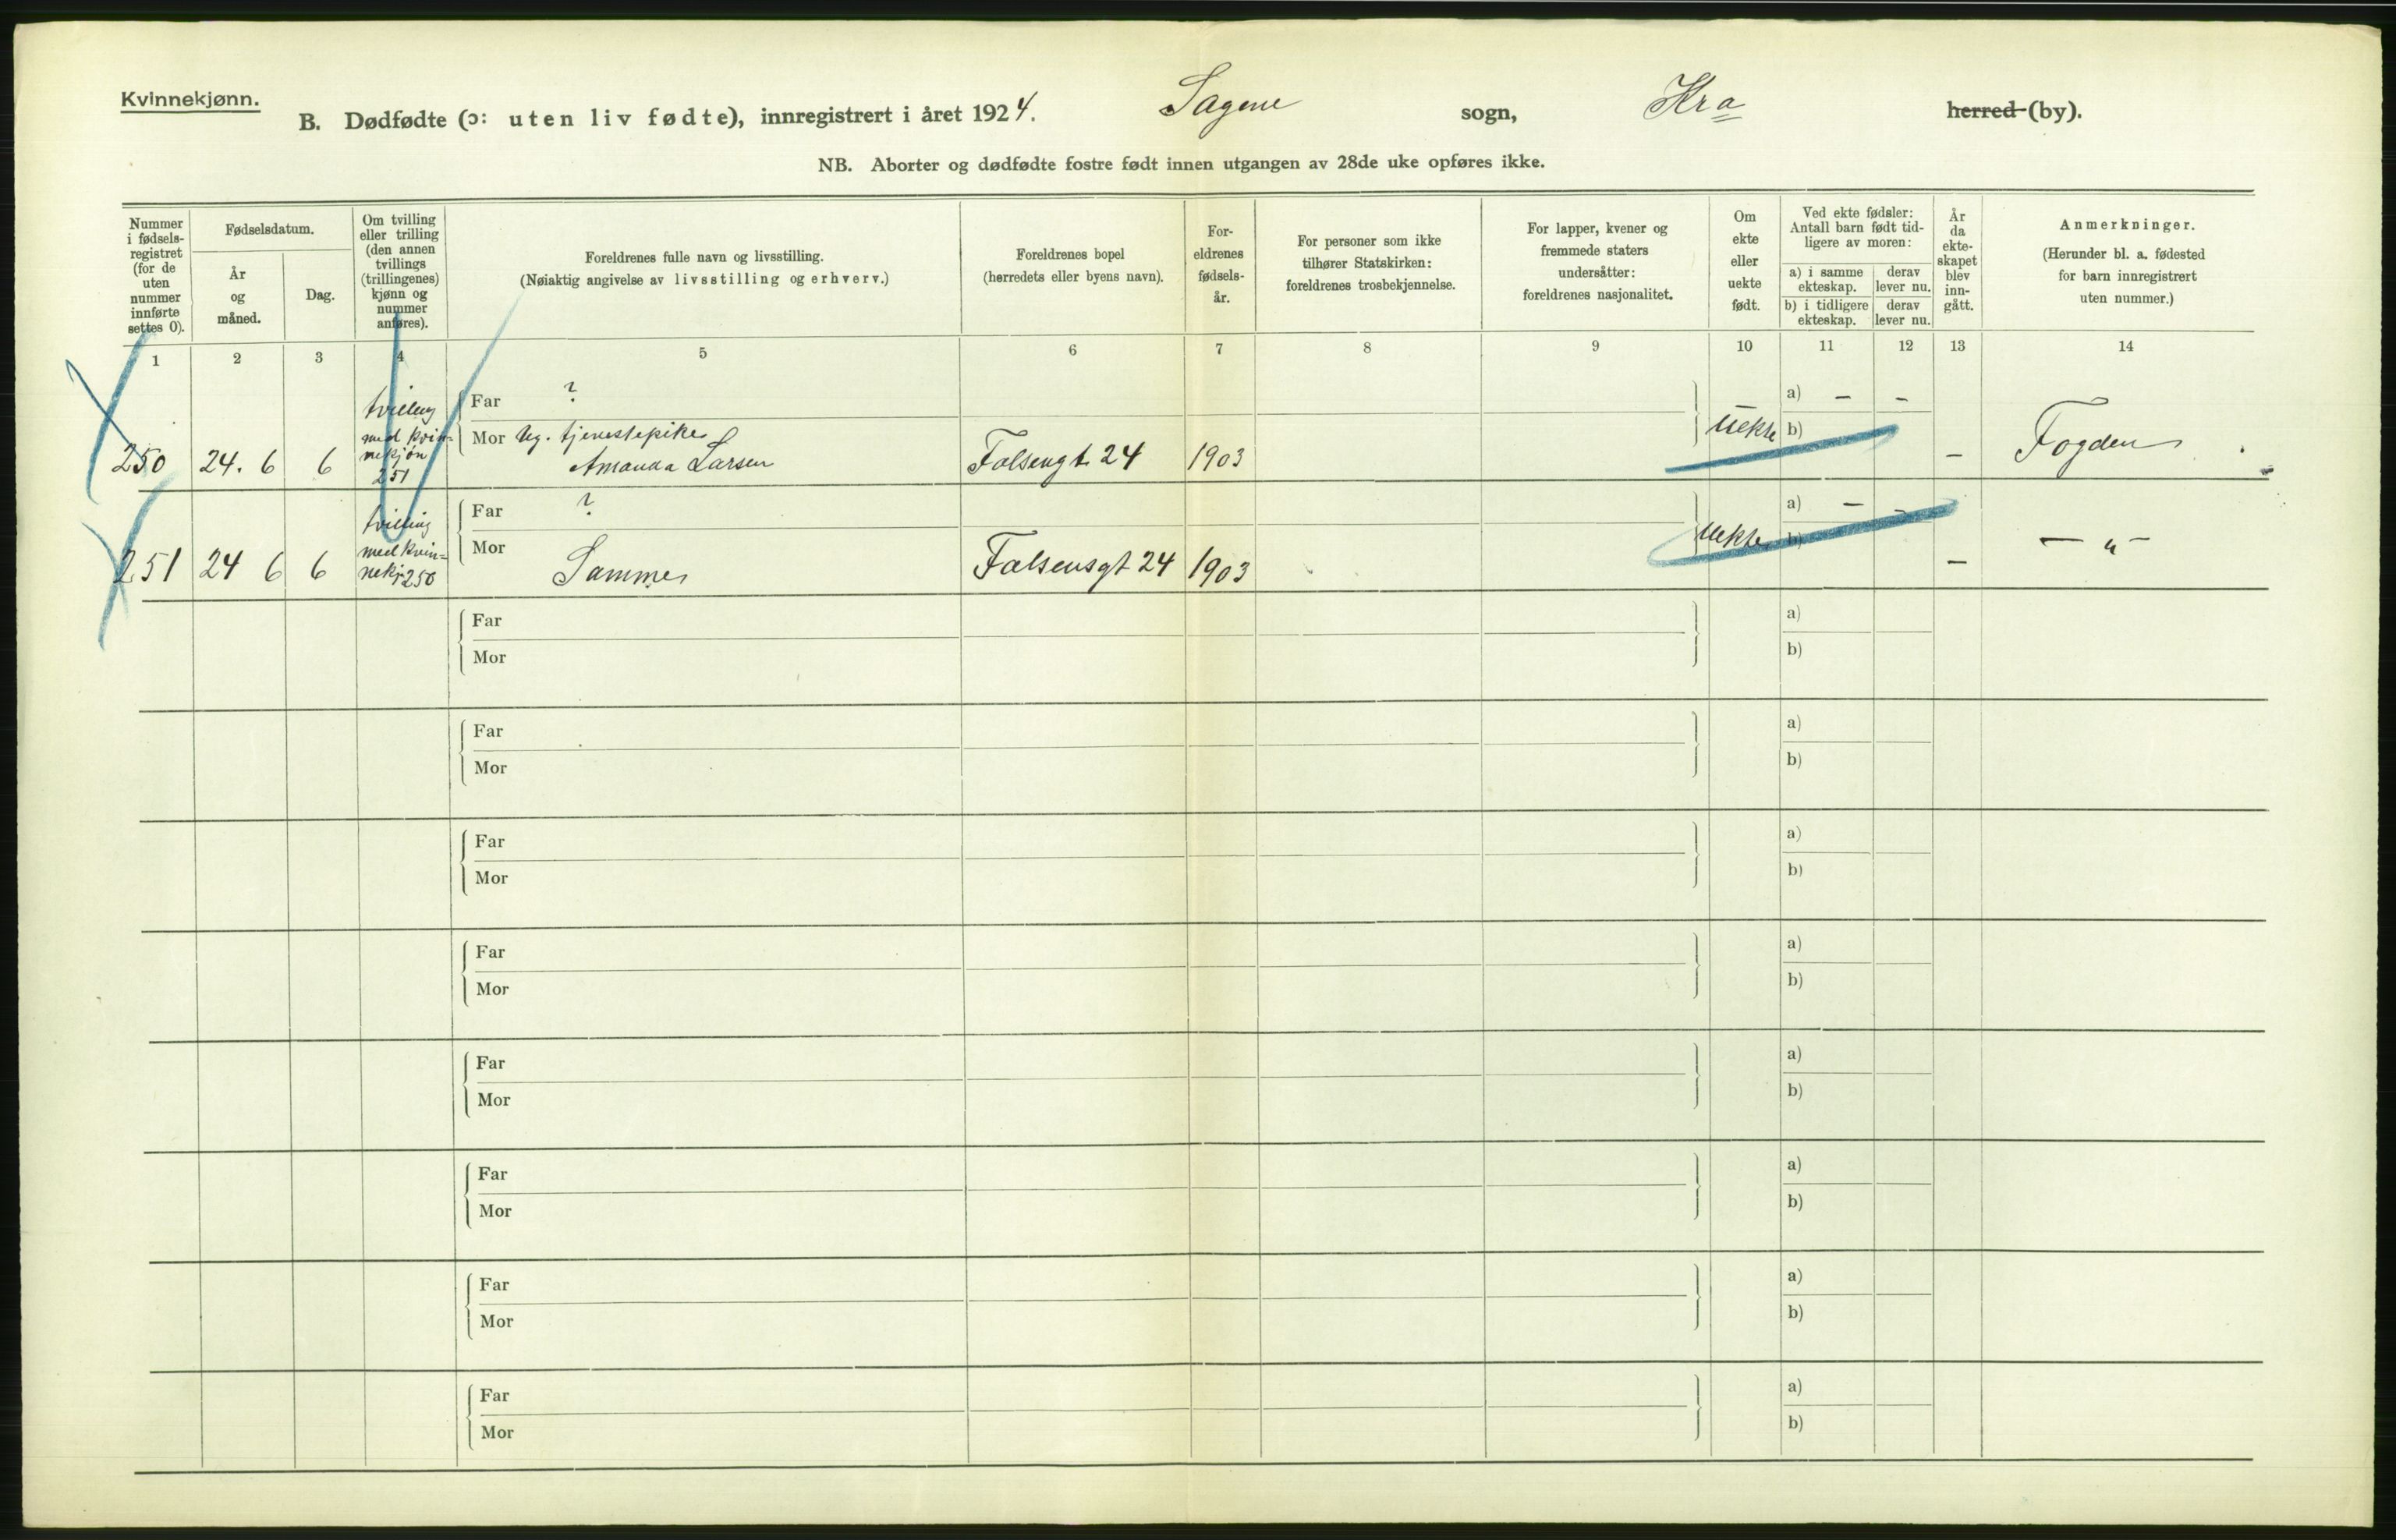 Kvinnekjønn.
B. Dødfødte (ɔ: uten liv fødte), innregistrert i året 1924. Sagene sogn, Kra herred (by).
NB. Aborter og dødfødte fostre født innen utgangen av 28de uke opføres ikke.
Nummer i fødsels-registret (for de uten nummer innførte settes 0).
Fødselsdatum.
År og måned.
Dag.
Om tvilling eller trilling (den annen tvillings (trillingenes) kjønn og nummer anføres).
Foreldrenes fulle navn og livsstilling.
(Nøiaktig angivelse av livsstilling og erhverv.)
Foreldrenes bopel
(herredets eller byens navn).
For-eldrenes fødsels-år.
For personer som ikke tilhører Statskirken: foreldrenes trosbekjennelse.
For lapper, kvener og fremmede staters undersåtter: foreldrenes nasjonalitet.
Om ekte eller uekte født.
Ved ekte fødsler: Antall barn født tid-ligere av moren:
a) i samme ekteskap.
derav lever nu.
b) i tidligere ekteskap.
derav lever nu.
År da ekte-skapet blev inn-gått.
Anmerkninger.
(Herunder bl. a. fødested for barn innregistrert uten nummer.)
1 2 3 4 5 6 7 8 9 10 11 12 13 14
Far ? a) - -
250 24. 6 6 tvilling med kvin= nekjøn 251 Mor Ug. tjenestepike Amanda Larsen Falsensgt. 24 1903 Uekte b) - Fogden
Far ? a) - -
251 24 6 6 tvilling med kvin= nekj. 250 Mor Samme Falsensgt 24 1903 Uekte b) - - " -
Far a)
Mor b)
Far a)
Mor b)
Far a)
Mor b)
Far a)
Mor b)
Far a)
Mor b)
Far a)
Mor b)
Far a)
Mor b)
Far a)
Mor b)